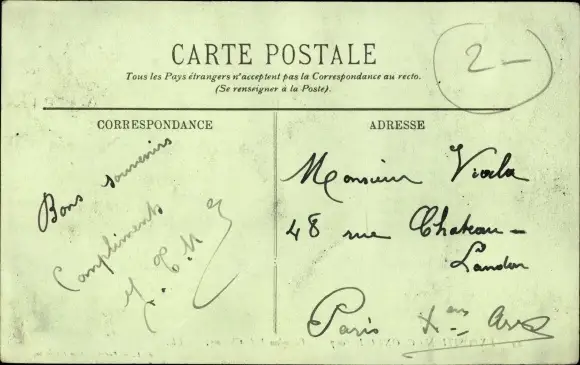 CARTE POSTALE
Tous les Pays étrangers n'acceptent pas la Correspondance au recto.
(Se renseigner à la Poste).
2 —
CORRESPONDANCE
Bons souvenirs
Compliments
ADRESSE
Monsieur Viala
48 rue Chateau-
Landon
Paris Xème Arr